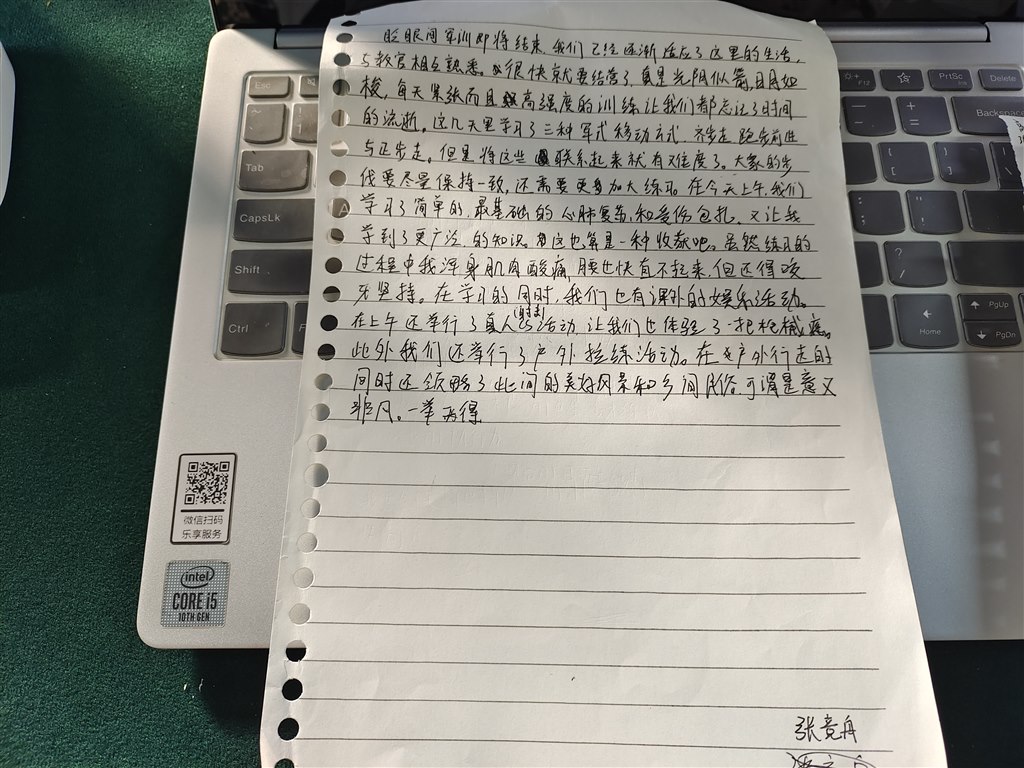 眨眼间军训即将结束,我们已经逐渐适应了这里的生活,
与教官相互熟悉。很快就要结营了,真是光阴似箭,日月如
梭,每天紧张而且高强度的训练让我们都忘记了时间
的流逝。这几天里学习了三种军式移动方式,齐步走,跑步前进
与正步走。但是将这些联系起来就有难度了。大家的步
伐要尽量保持一致,还需要更多加大练习。在今天上午,我们
学习了简单的,最基础的心肺复苏,和受伤包扎,又让我
学到了更广泛的知识。这也算是一种收获吧。虽然练习的
过程中我浑身肌肉酸痛,腰也快直不起来,但还得咬
牙坚持。在学习的同时,我们也有课外的娱乐活动。
在上午还举行了真人(射击)活动,让我们也体验了一把枪械瘾。
此外我们还举行了户外拉练活动。在户外行走的
同时还领略了此间的美好风景和乡间民俗,可谓是意义
非凡。一举两得
张竞舟
Esc
Tab
CapsLk
A
Shift
Ctrl
F12
PrtSc
Delete
Backspace
Home
PgUp
PgDn
微信扫码
乐享服务
intel
CORE i5
10TH GEN